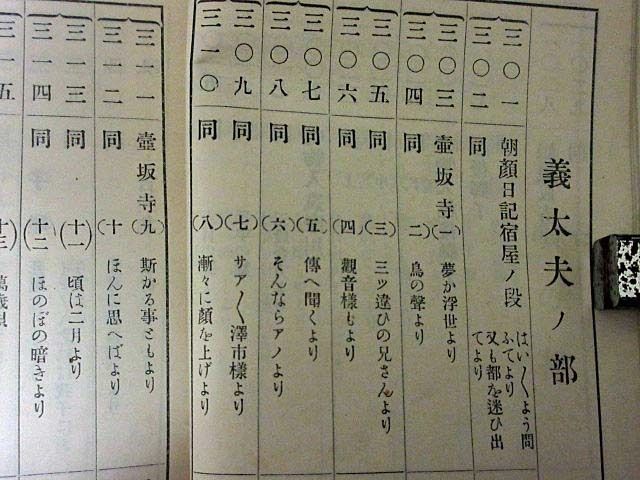 義太夫ノ部
三〇一 朝顔日記宿屋ノ段 はい〱よう問ふてより
三〇二 同 又も都を迷ひ出てより
三〇三 壺坂寺(一) 夢か浮世より
三〇四 同(二) 鳥の聲より
三〇五 同(三) 三ツ違ひの兄さんより
三〇六 同(四) 觀音樣もより
三〇七 同(五) 傳へ聞くより
三〇八 同(六) そんならアノより
三〇九 同(七) サア〱澤市樣より
三一〇 同(八) 漸々に顔を上げより
三一一 壺坂寺(九) 斯かる事ともより
三一二 同(十) ほんに思へばより
三一三 同(十一) 頃は二月より
三一四 同(十二) ほのぼの暗きより
三一五 (十三)